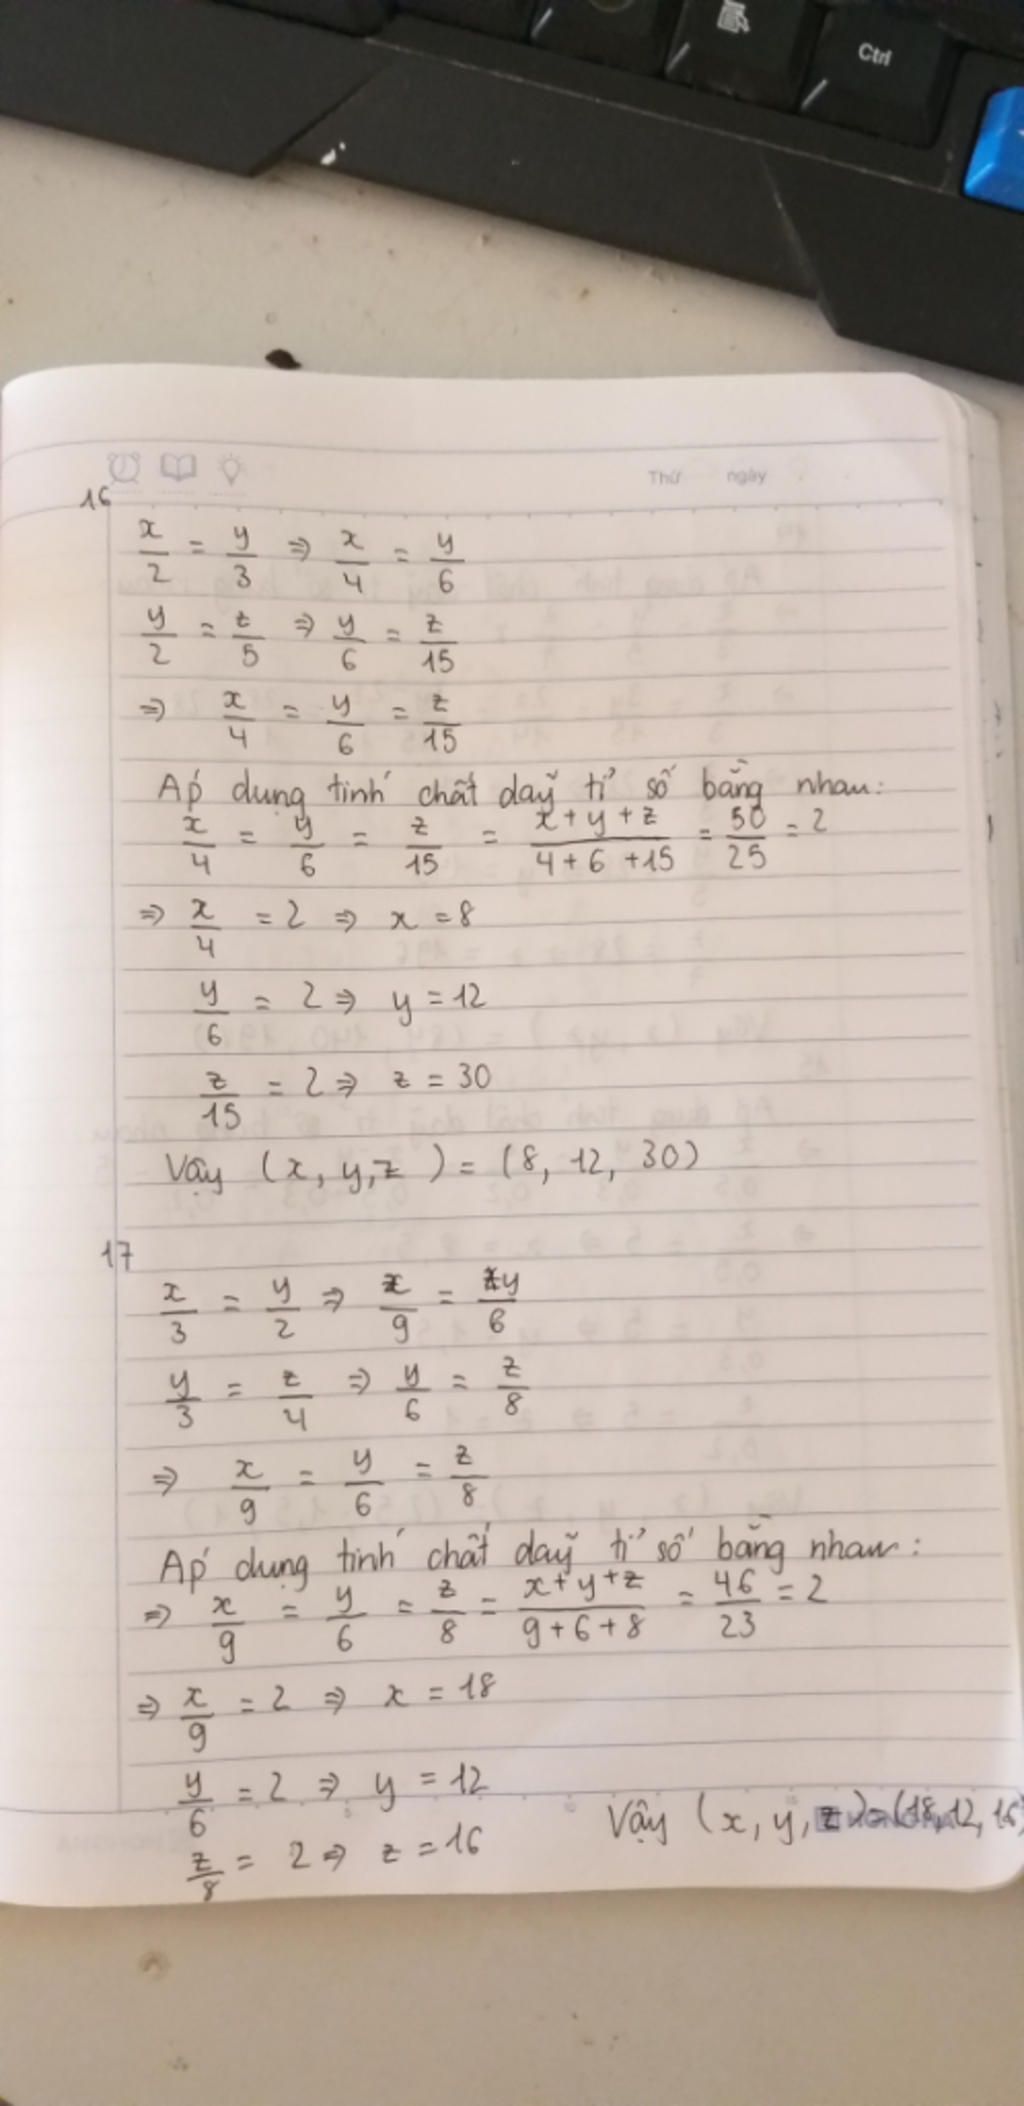 Ctrl
Thứ ngày
16
x/2 = y/3 => x/4 = y/6
y/2 = z/5 => y/6 = z/15
=> x/4 = y/6 = z/15
Áp dụng tính chất dãy tỉ số bằng nhau:
x/4 = y/6 = z/15 = (x+y+z)/(4+6+15) = 50/25 = 2
=> x/4 = 2 => x = 8
y/6 = 2 => y = 12
z/15 = 2 => z = 30
Vậy (x, y, z) = (8, 12, 30)
17
x/3 = y/2 => x/9 = y/6
y/3 = z/4 => y/6 = z/8
=> x/9 = y/6 = z/8
Áp dụng tính chất dãy tỉ số bằng nhau:
=> x/9 = y/6 = z/8 = (x+y+z)/(9+6+8) = 46/23 = 2
=> x/9 = 2 => x = 18
y/6 = 2 => y = 12
z/8 = 2 => z = 16
Vậy (x, y, z) = (18, 12, 16)